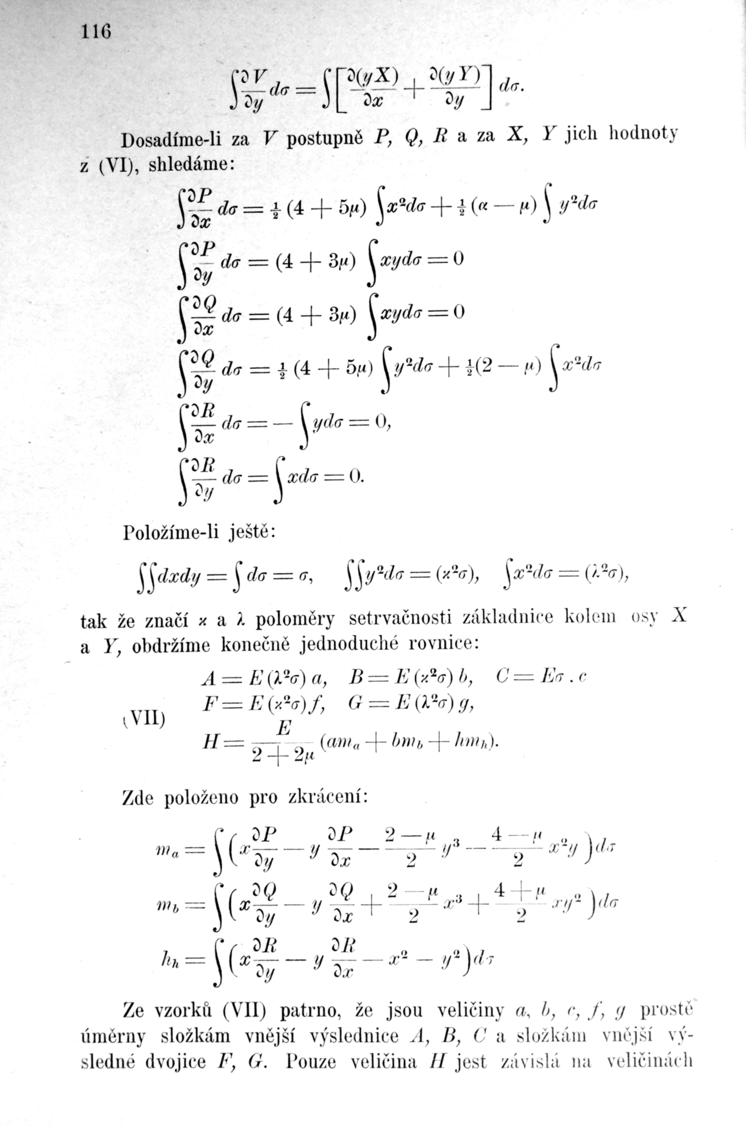 116
∫ ∂V/∂y dσ = ∫ [ ∂(yX)/∂x + ∂(yY)/∂y ] dσ.
Dosadíme-li za V postupně P, Q, R a za X, Y jich hodnoty
z (VI), shledáme:
∫ ∂P/∂x dσ = ½ (4 + 5μ) ∫ x²dσ + ½ (α — μ) ∫ y²dσ
∫ ∂P/∂y dσ = (4 + 3μ) ∫ xydσ = 0
∫ ∂Q/∂x dσ = (4 + 3μ) ∫ xydσ = 0
∫ ∂Q/∂y dσ = ½ (4 + 5μ) ∫ y²dσ + ½(2 — μ) ∫ x²dσ
∫ ∂R/∂x dσ = — ∫ ydσ = 0,
∫ ∂R/∂y dσ = ∫ xdσ = 0.
Položíme-li ještě:
∫∫ dxdy = ∫ dσ = σ, ∫∫ y²dσ = (ϰ²σ), ∫ x²dσ = (λ²σ),
tak že značí ϰ a λ poloměry setrvačnosti základnice kolem osy X
a Y, obdržíme konečně jednoduché rovnice:
A = E (λ²σ) a, B = E (ϰ²σ) b, C = Eσ . c
F = E (ϰ²σ) f, G = E (λ²σ) g,
(VII)
H = E/(2 + 2μ) (amₐ + bm_b + hm_h).
Zde položeno pro zkrácení:
mₐ = ∫ ( x ∂P/∂y — y ∂P/∂x — (2 — μ)/2 y³ — (4 — μ)/2 x²y ) dσ
m_b = ∫ ( x ∂Q/∂y — y ∂Q/∂x + (2 — μ)/2 x³ + (4 + μ)/2 xy² ) dσ
h_h = ∫ ( x ∂R/∂y — y ∂R/∂x — x² — y² ) dσ
Ze vzorků (VII) patrno, že jsou veličiny a, b, c, f, g prostě
úměrny složkám vnější výslednice A, B, C a složkám vnější vý-
sledné dvojice F, G. Pouze veličina H jest závislá na veličinách